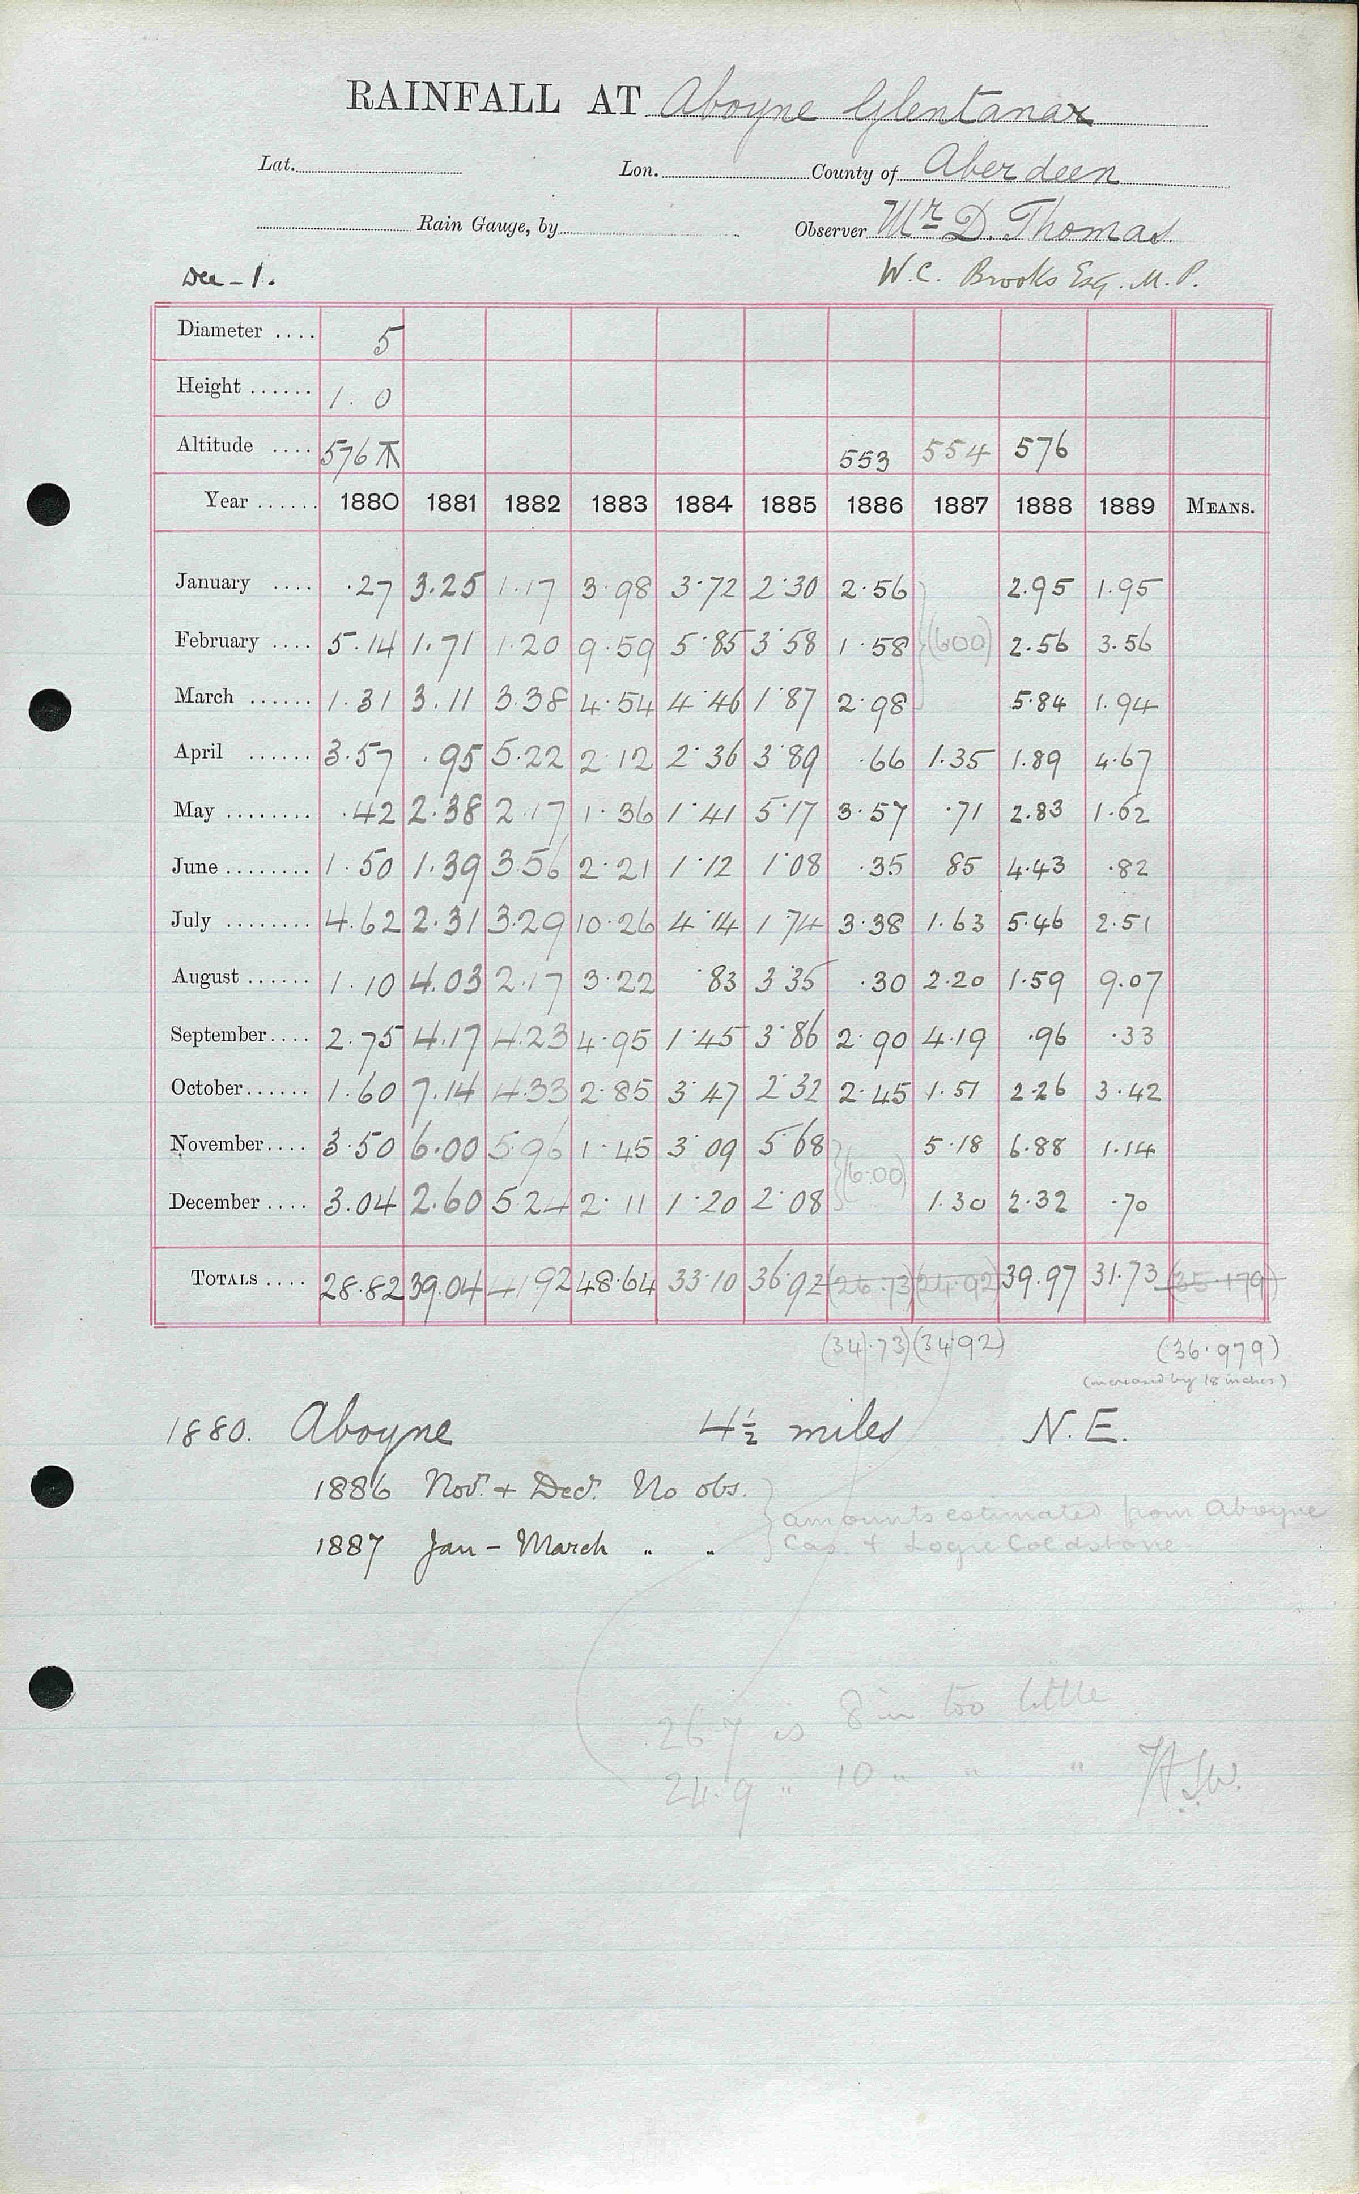 RAINFALL AT Aboyne Glentanar
Lat. Lon. County of Aberdeen
Rain Gauge, by Observer Mr D. Thomas
Dee - 1. W. C. Brooks Esq. M. P.
Diameter .... 5
Height ...... 1. 0
Altitude .... 576 553 554 576
Year ...... 1880 1881 1882 1883 1884 1885 1886 1887 1888 1889 MEANS.
January .... .27 3.25 1.17 3.98 3.72 2.30 2.56 2.95 1.95
February .... 5.14 1.71 1.20 9.59 5.85 3.58 1.58 (600) 2.56 3.56
March ...... 1.31 3.11 3.38 4.54 4.46 1.87 2.98 5.84 1.94
April ...... 3.57 .95 5.22 2.12 2.36 3.89 .66 1.35 1.89 4.67
May ........ .42 2.38 2.17 1.36 1.41 5.17 3.57 .71 2.83 1.62
June ........ 1.50 1.39 3.56 2.21 1.12 1.08 .35 85 4.43 .82
July ........ 4.62 2.31 3.29 10.26 4.14 1 74 3.38 1.63 5.46 2.51
August ...... 1.10 4.03 2.17 3.22 .83 3.35 .30 2.20 1.59 9.07
September.... 2.75 4.17 4.23 4.95 1.45 3.86 2.90 4.19 .96 .33
October...... 1.60 7.14 4.33 2.85 3.47 2.32 2.45 1.51 2.26 3.42
November.... 3.50 6.00 5.96 1.45 3.09 5.68 5.18 6.88 1.14
(6.00)
December .... 3.04 2.60 5.24 2.11 1.20 2.08 1.30 2.32 .70
TOTALS .... 28.82 39.04 41.92 48.64 33.10 36.92 (26.73) (24.92) 39.97 31.73 (35.179)
(34.73) (34.92) (36.979)
(increased by 18 inches)
1880. Aboyne 4½ miles N. E.
1886 Nov. + Dec. No obs.
amounts estimated from Aboyne
1887 Jan - March " "
Cas. & Logie Coldstone
26.7 is 8 in too little
24.9 " 10 " " "